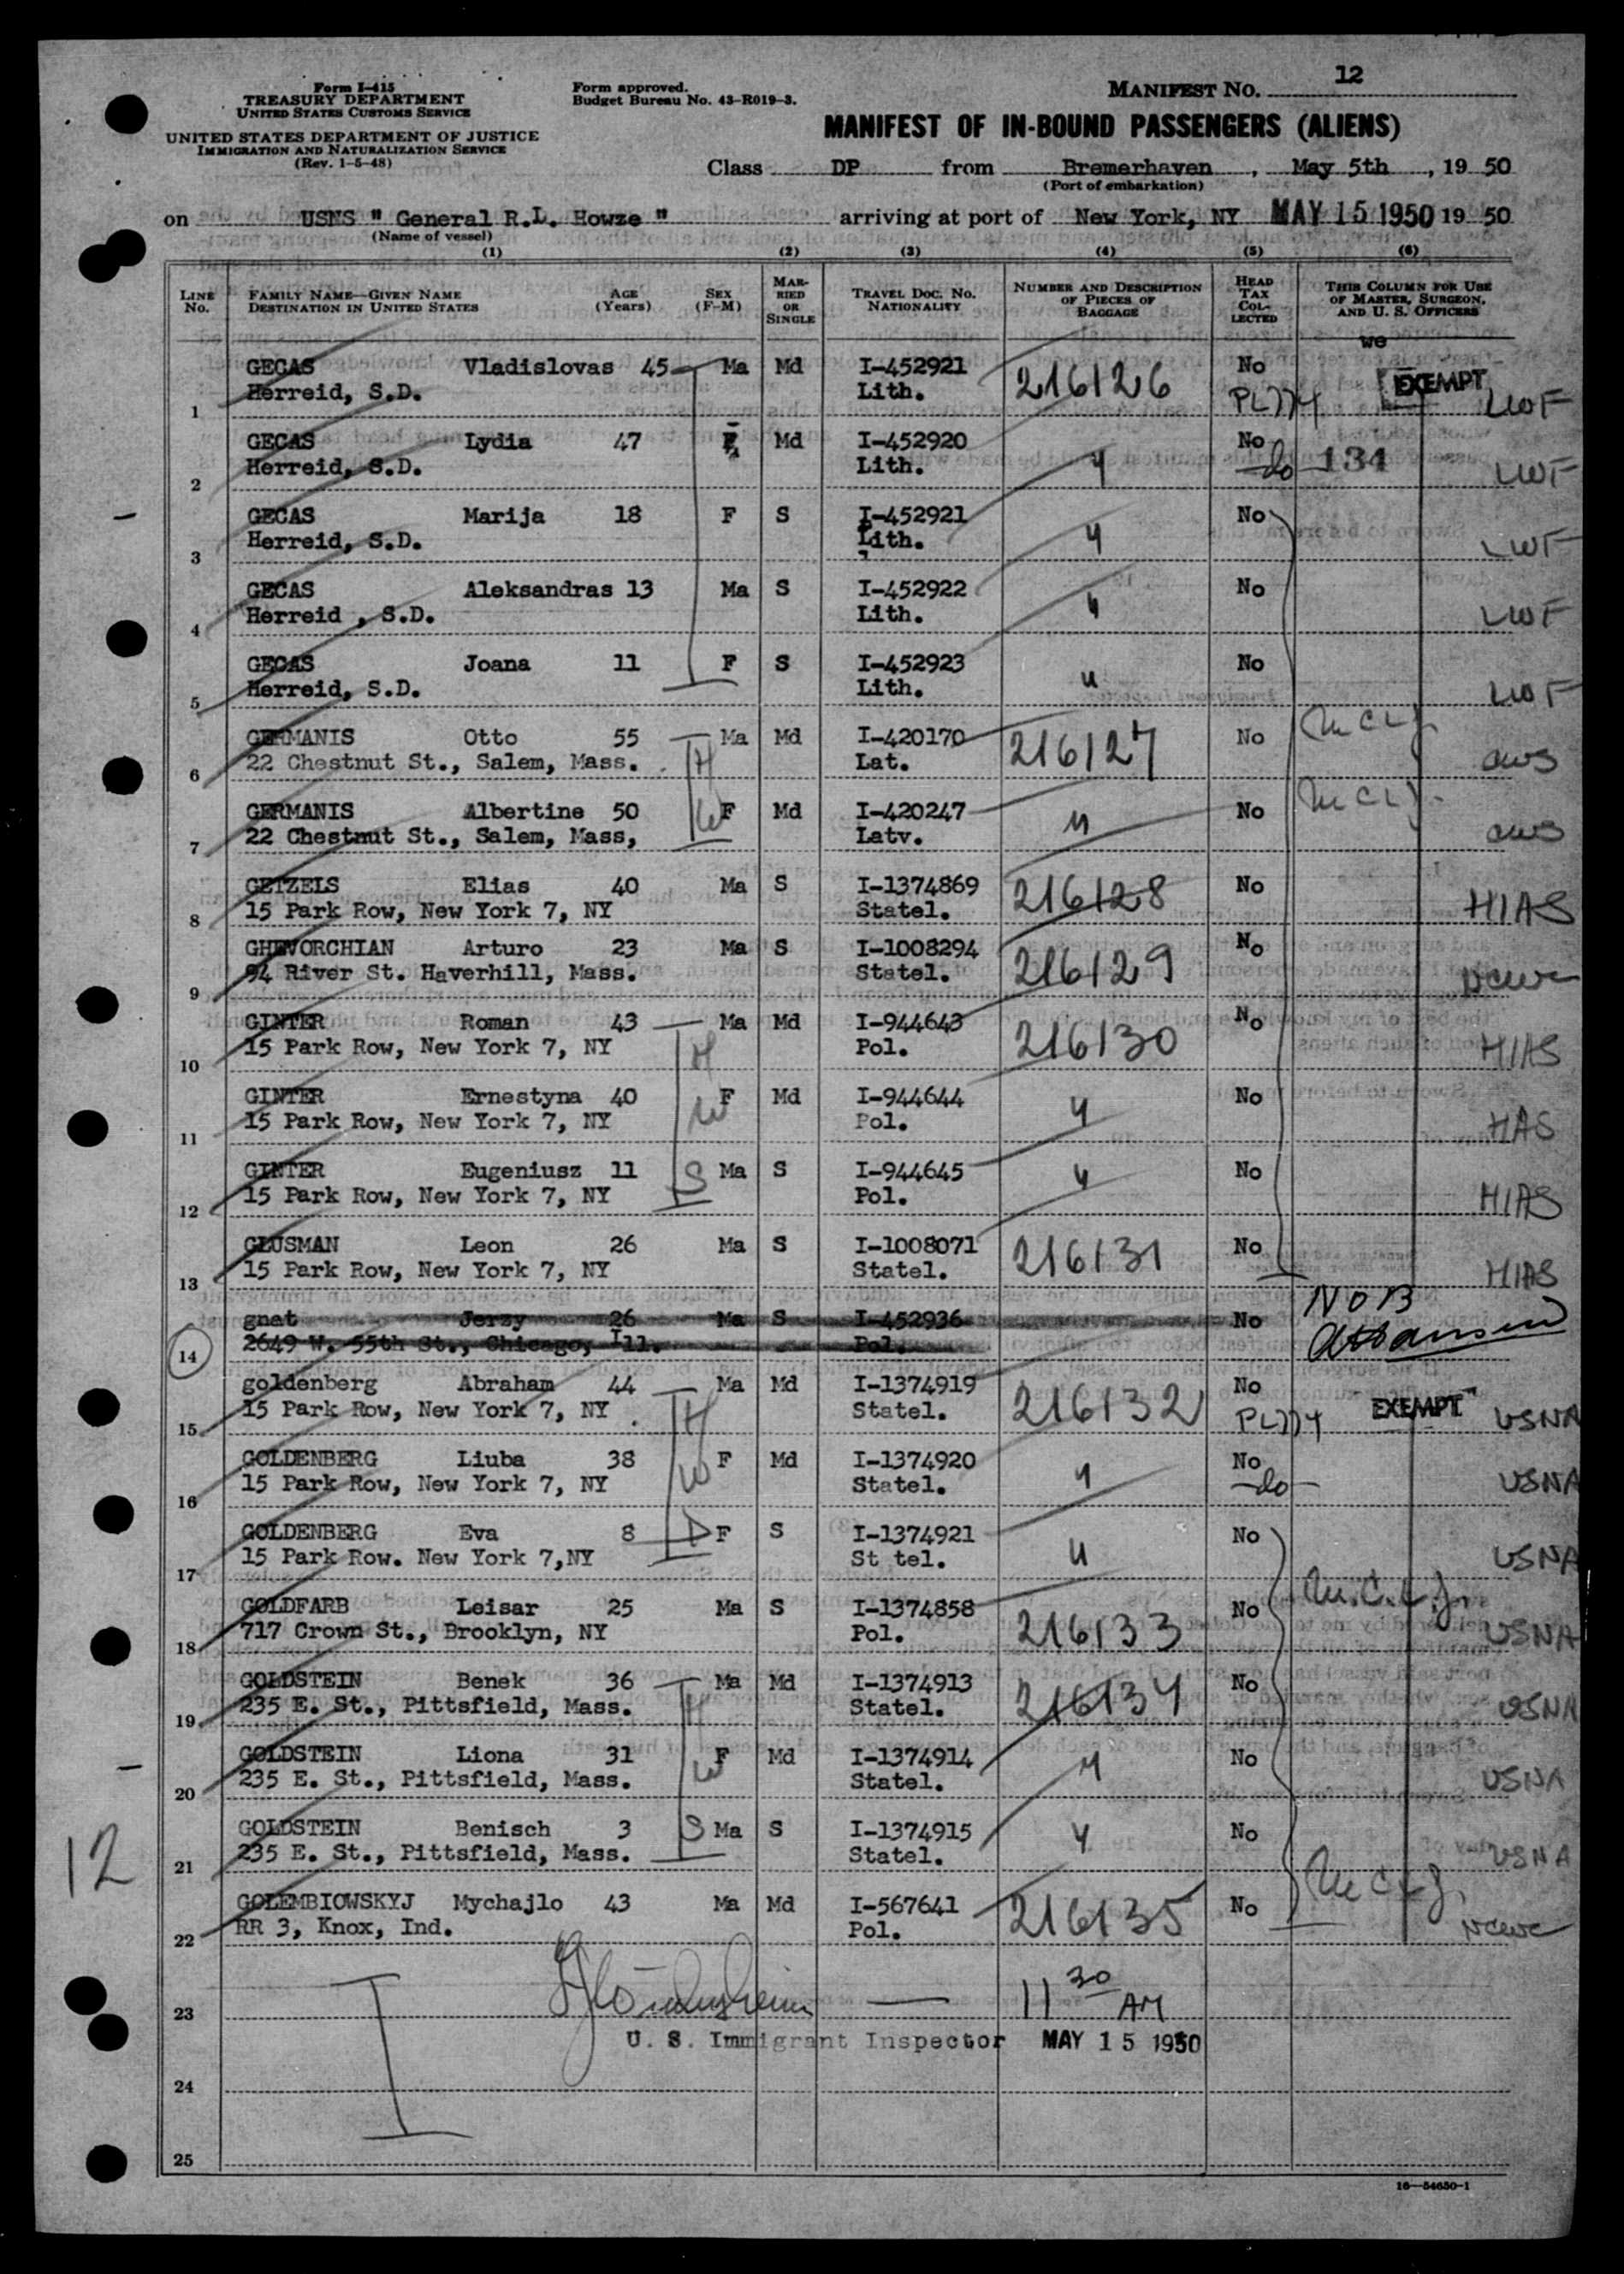 12
Form I-415
TREASURY DEPARTMENT
UNITED STATES CUSTOMS SERVICE
Form approved.
Budget Bureau No. 43-R019-3.
MANIFEST NO. 12
UNITED STATES DEPARTMENT OF JUSTICE
IMMIGRATION AND NATURALIZATION SERVICE
(Rev. 1-5-48)
MANIFEST OF IN-BOUND PASSENGERS (ALIENS)
Class DP from Bremerhaven, May 5th, 19 50
(Port of embarkation)
on USNS " General R.L. Howze " arriving at port of New York, NY MAY 15 1950 19 50
(Name of vessel)
(1) (2) (3) (4) (5) (6)
LINE No. FAMILY NAME—GIVEN NAME DESTINATION IN UNITED STATES AGE (Years) SEX (F-M) MARRIED OR SINGLE TRAVEL DOC. NO. NATIONALITY NUMBER AND DESCRIPTION OF PIECES OF BAGGAGE HEAD TAX COLLECTED THIS COLUMN FOR USE OF MASTER, SURGEON, AND U. S. OFFICERS
GECAS Vladislovas 45 Ma Md I-452921 216126 No EXEMPT LWF
1 Herreid, S.D. Lith. PL774
GECAS Lydia 47 F Md I-452920 " No 134 LWF
2 Herreid, S.D. Lith. -do-
GECAS Marija 18 F S I-452921 " No LWF
3 Herreid, S.D. Lith.
GECAS Aleksandras 13 Ma S I-452922 " No LWF
4 Herreid , S.D. Lith.
GECAS Joana 11 F S I-452923 " No LWF
5 Herreid, S.D. Lith.
GERMANIS Otto 55 H Ma Md I-420170 216127 No
6 22 Chestnut St., Salem, Mass. Lat.
GERMANIS Albertine 50 W F Md I-420247 " No
7 22 Chestnut St., Salem, Mass, Latv.
GETZELS Elias 40 Ma S I-1374869 216128 No HIAS
8 15 Park Row, New York 7, NY Statel.
GHEVORCHIAN Arturo 23 Ma S I-1008294 216129 No NCWC
9 94 River St. Haverhill, Mass. Statel.
GINTER Roman 43 H Ma Md I-944643 216130 No HIAS
10 15 Park Row, New York 7, NY Pol.
GINTER Ernestyna 40 W F Md I-944644 " No HIAS
11 15 Park Row, New York 7, NY Pol.
GINTER Eugeniusz 11 S Ma S I-944645 " No HIAS
12 15 Park Row, New York 7, NY Pol.
GLUSMAN Leon 26 Ma S I-1008071 216131 No HIAS
13 15 Park Row, New York 7, NY Statel.
gnat Jerzy 26 Ma S I-452936 No NOB
14 2649 W. 55th St., Chicago, Ill. Pol.
goldenberg Abraham 44 H Ma Md I-1374919 216132 No EXEMPT USNA
15 15 Park Row, New York 7, NY . Statel. PL774
GOLDENBERG Liuba 38 W F Md I-1374920 " No USNA
16 15 Park Row, New York 7, NY Statel. -do-
GOLDENBERG Eva 8 D F S I-1374921 " No USNA
17 15 Park Row. New York 7,NY St tel.
GOLDFARB Leisar 25 Ma S I-1374858 216133 No USNA
18 717 Crown St., Brooklyn, NY Pol.
GOLDSTEIN Benek 36 H Ma Md I-1374913 216134 No USNA
19 235 E. St., Pittsfield, Mass. Statel.
GOLDSTEIN Liona 31 W F Md I-1374914 " No USNA
20 235 E. St., Pittsfield, Mass. Statel.
GOLDSTEIN Benisch 3 S Ma S I-1374915 " No USNA
21 235 E. St., Pittsfield, Mass. Statel.
GOLEMBIOWSKYJ Mychajlo 43 Ma Md I-567641 216135 No NCWC
22 RR 3, Knox, Ind. Pol.
23 11 30 AM
U. S. Immigrant Inspector MAY 15 1950
24
25
16—54650-1